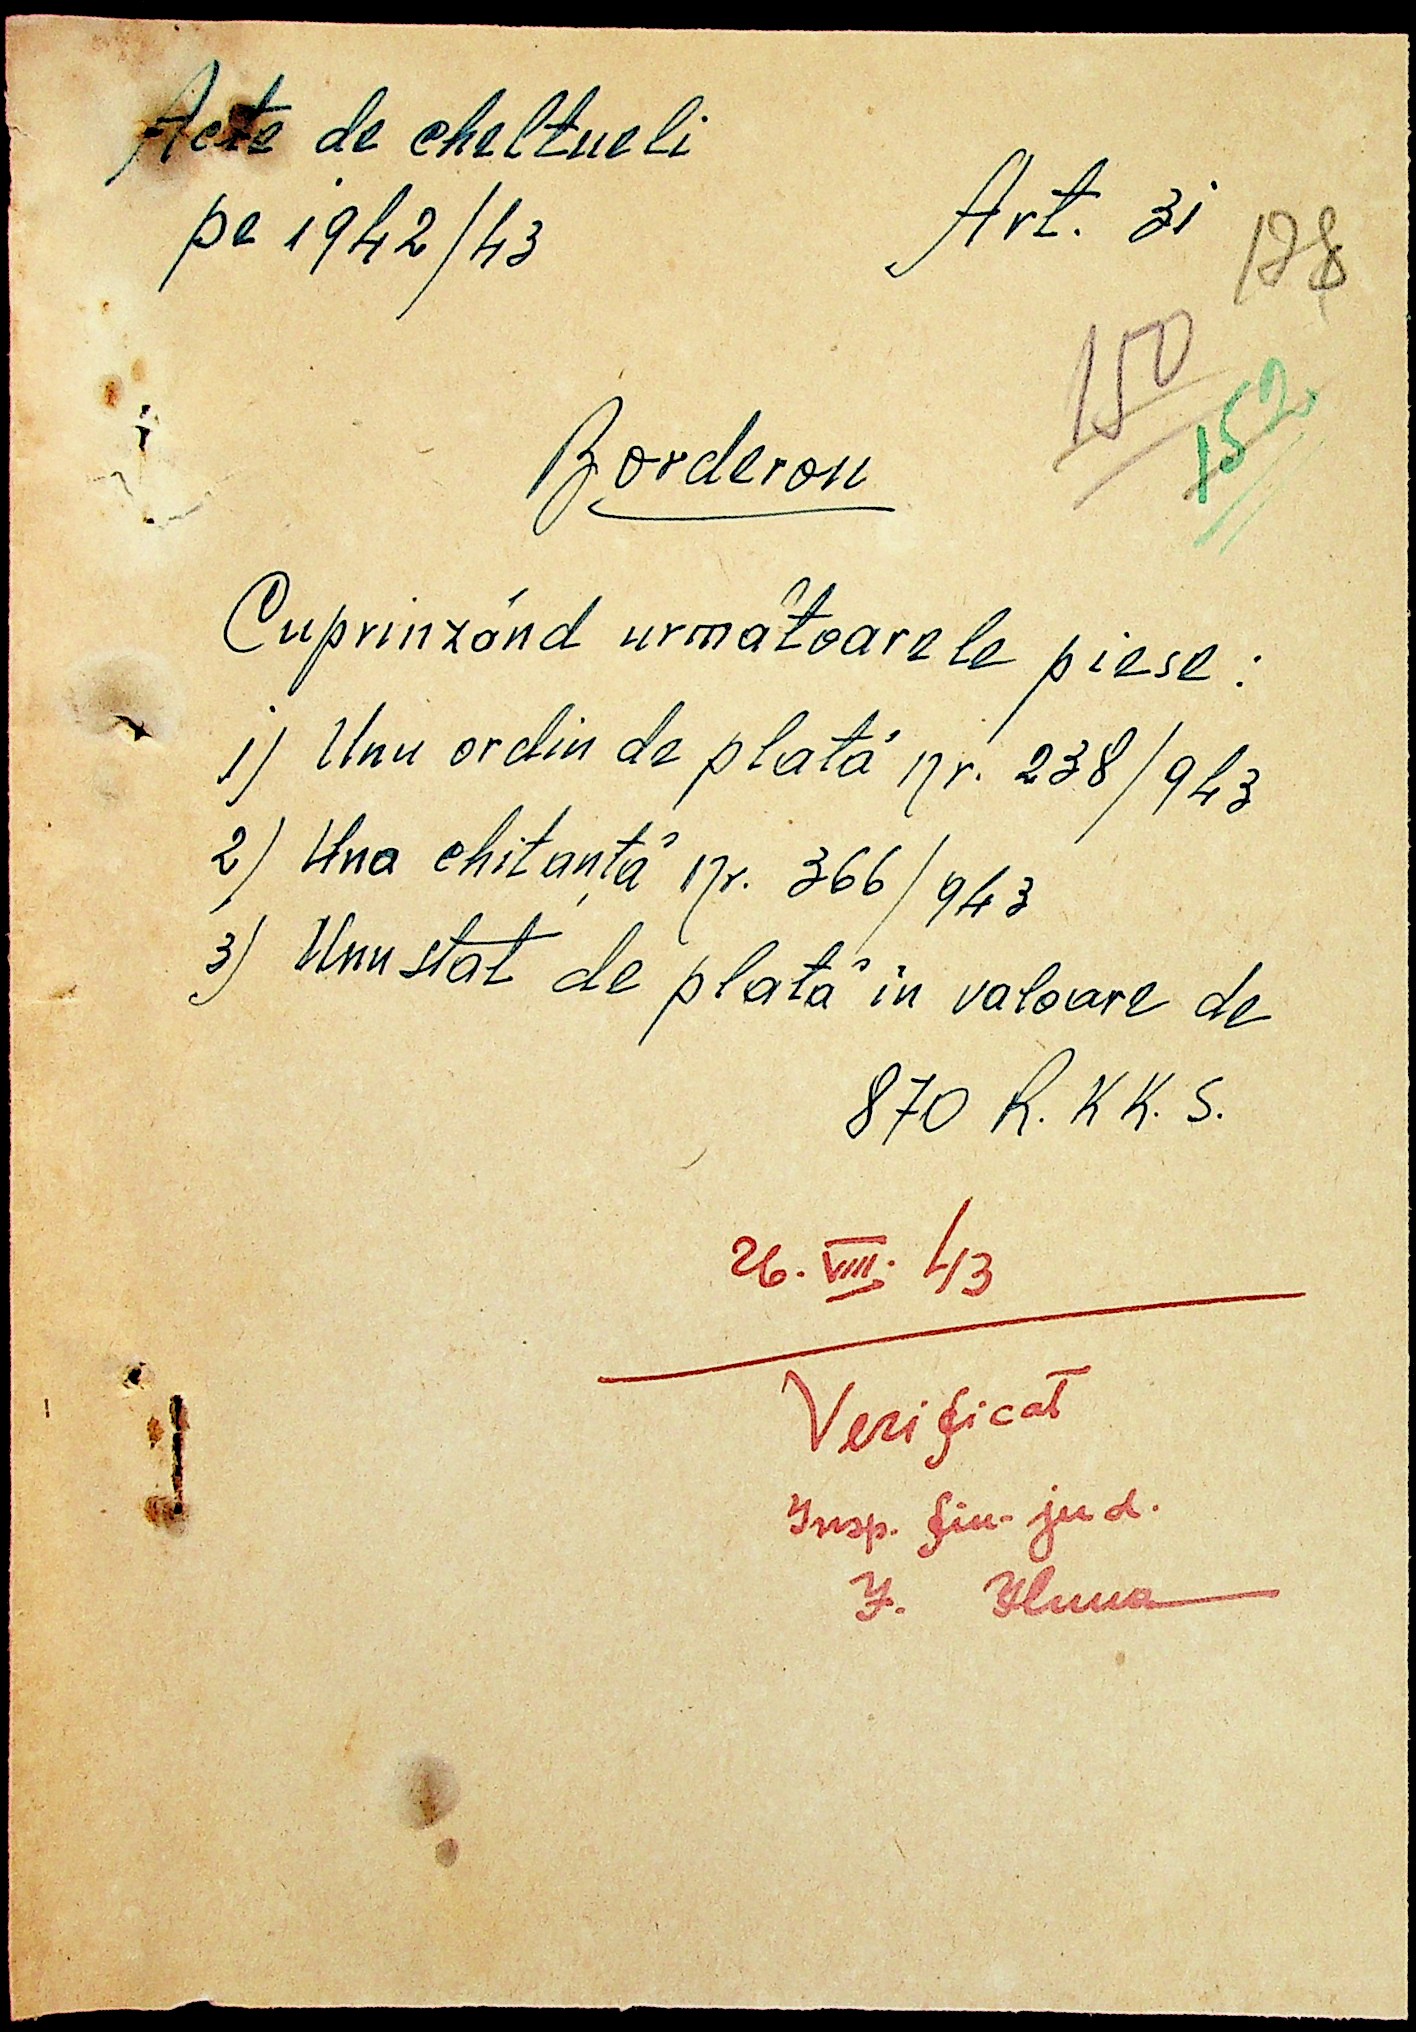 Acte de cheltueli
pe 1942/43
Art. 31
128
150
152
Borderou
Cuprinzând următoarele piese:
1) Unu ordin de plată nr. 238/943
2) Una chitanță nr. 366/943
3) Unu stat de plată în valoare de
870 R.KK.S.
26.VIII.43
Verificat
Insp. fin. jud.
I.